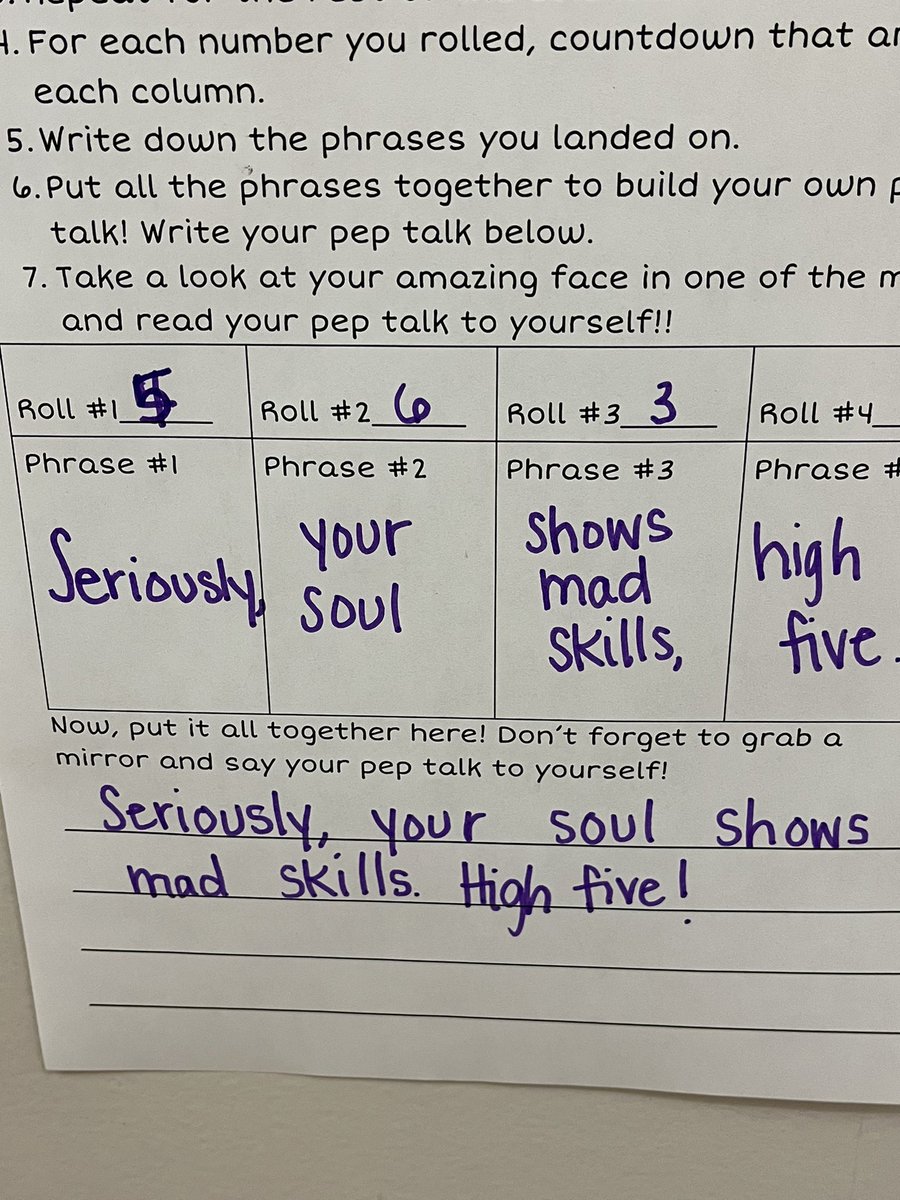 4. For each number you rolled, countdown that
each column.
5. Write down the phrases you landed on.
6. Put all the phrases together to build your own
talk! Write your pep talk below.
7. Take a look at your amazing face in one of the
and read your pep talk to yourself!!
Roll #1 5 Roll #2 6 Roll #3 3 Roll #4
Phrase #1 Phrase #2 Phrase #3 Phrase #
Seriously, your soul shows mad skills, high five.
Now, put it all together here! Don't forget to grab a
mirror and say your pep talk to yourself!
Seriously, your soul shows
mad skills. High five!